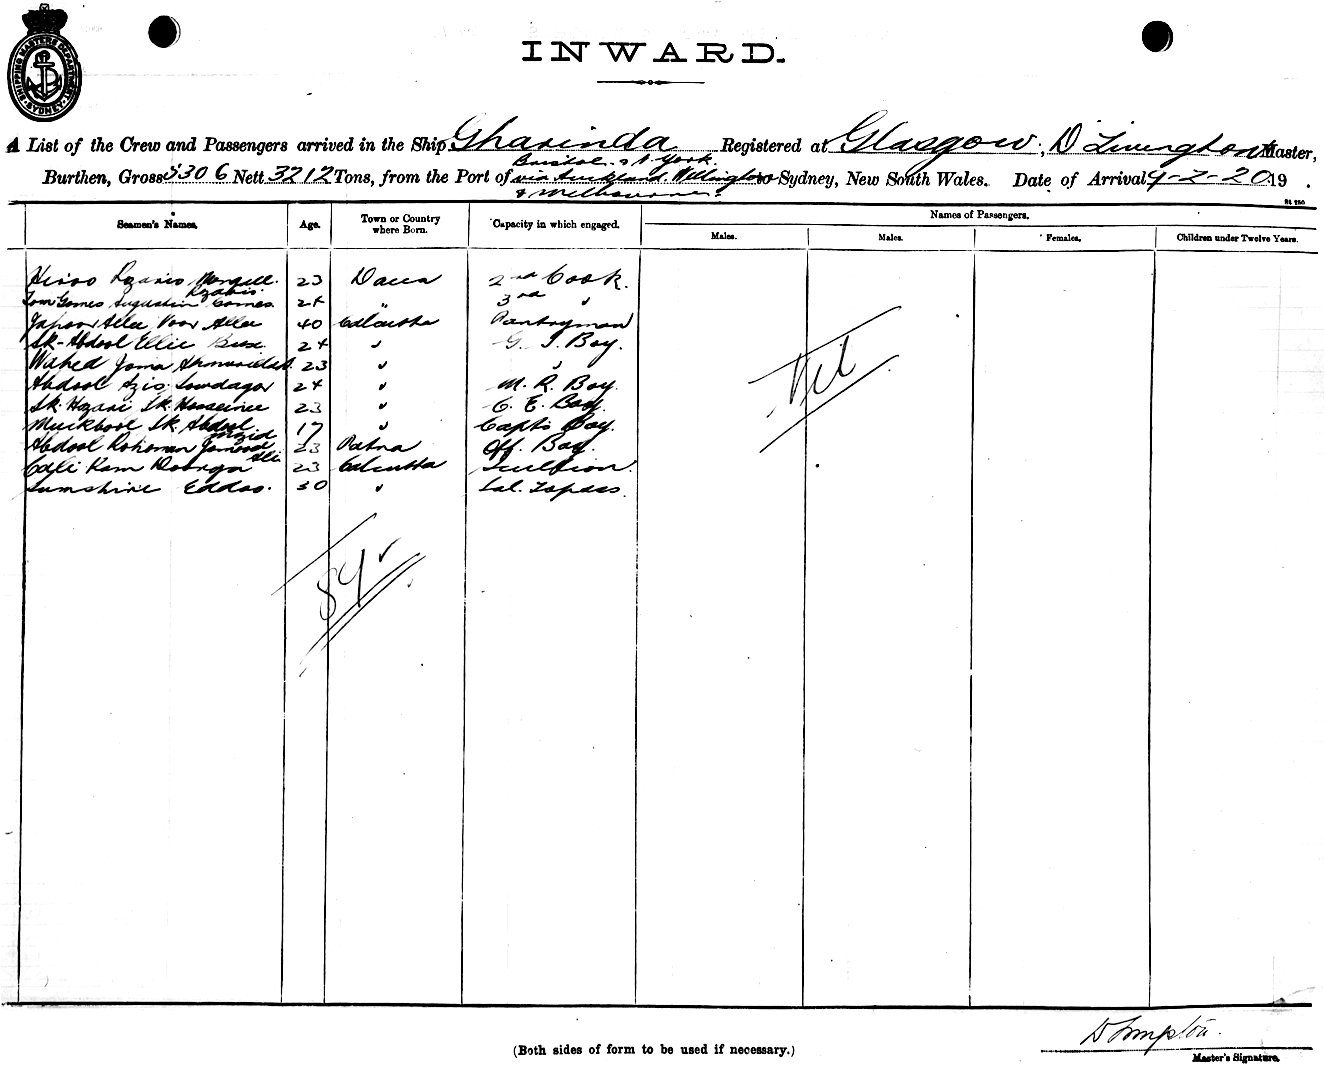 SHIPPING MASTERS DEPARTMENT SYDNEY
INWARD.
A List of the Crew and Passengers arrived in the Ship Gharinda Registered at Glasgow, D Livingston Master,
Bristol. & N York.
Burthen, Gross 5306 Nett 3212 Tons, from the Port of via Auckland. Wellington Sydney, New South Wales. Date of Arrival 9-2-20 19 .
& Melbourne.
Seamen's Names. Age. Town or Country where Born. Capacity in which engaged. Names of Passengers.
Males. Males. Females. Children under Twelve Years.
23 Dacca 2nd Cook.
Rozario.
Tom Gomes Augustin Gomes. 24 " 3rd "
Jafoor Allee Noor Allee 40 Calcutta Pantryman
Sk. Abdool Ellie Bux 24 " G. S. Boy.
Wahed 23 " "
Abdool Azis Sowdagar 24 " M. R. Boy.
Sk. Hozari Sk. Hosseinee 23 " C. E. Boy.
Muckbool Sk. Abdool 17 " Capts Boy.
Mazid
Abdool Rohoman 23 Patna Off. Boy.
Ali
Cali Ram Doorga 23 Calcutta Scullion.
Sumshire Eddoo. 30 " Sal. Topass.
Nil
84
(Both sides of form to be used if necessary.)
Master's Signature.